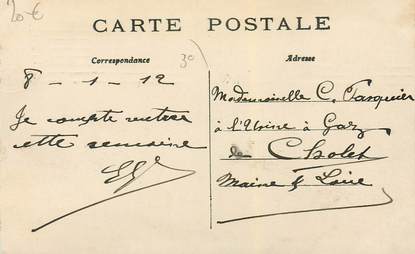 20€
CARTE POSTALE
Correspondance
30
Adresse
8-1-12
Je compte rentrer
cette semaine
Mademoiselle C. Pasquier
à l'Usine à Gaz
de Cholet
Maine & Loire